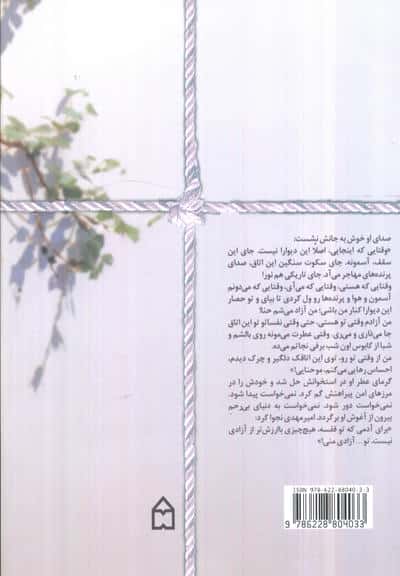 صدای او خوش به جانش نشست:
«وقتایی که اینجایی، اصلا این دیوارا نیست. جای این
سقف، آسمونه. جای سکوت سنگین این اتاق، صدای
پرنده‌های مهاجر می‌آد. جای تاریکی هم نور!
وقتایی که هستی، وقتایی که می‌آی، وقتایی که می‌دونم
آسمون و هوا و پرنده‌ها رو ول کردی تا بیای و تو حصار
این دیوارا کنار من باشی؛ من آزاد می‌شم حنا!
من آزادم وقتی تو هستی. حتی وقتی نفساتو تو این اتاق
جا می‌ذاری و می‌ری. وقتی عطرت می‌مونه روی بالشم و
شبا از کابوس اون شب برفی نجاتم می‌ده.
من از وقتی تو رو، توی این اتاقک دلگیر و چرک دیدم،
احساس رهایی می‌کنم، موحنایی!»
گرمای عطر او در استخوانش حل شد و خودش را در
مرزهای امن پیراهنش گم کرد. نمی‌خواست پیدا شود.
نمی‌خواست دور شود. نمی‌خواست به دنیای بی‌رحم
بیرون از آغوش او برگردد. امیرمهدی نجوا کرد:
«برای آدمی که تو قفسه، هیچ‌چیزی باارزش‌تر از آزادی
نیست. تو... آزادی منی!»
ISBN 978-622-88040-3-3
9 786228 804033